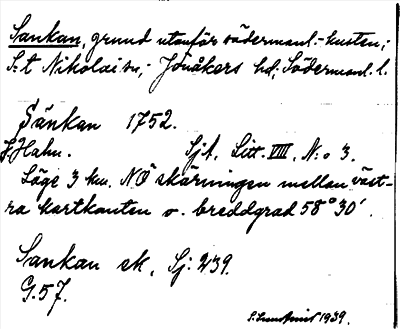 Sankan, grund utanför södermanl.-kusten,;
S:t Nikolai sn,; Jönåkers hd,; Södermanl. l.
Sänkan 1752.
J Hahn. Sjk. Litt. VIII, N:o 3.
Läge 3 km. NÖ skärningen mellan väst-
ra kartkanten o. breddgrad 58°30′.
Sankan sk. Sj: 239.
G.57.
1939.